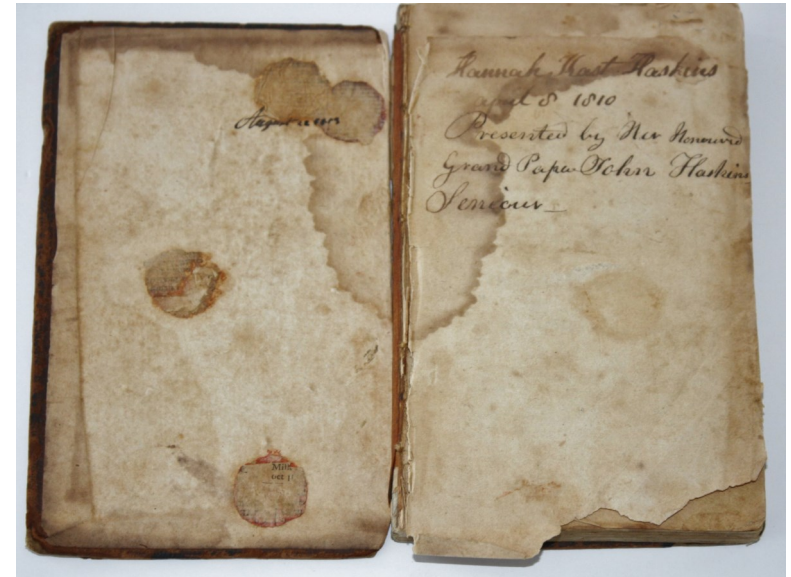 August
Hannah Kast Haskins
april 8 1810
Presented by Her Honourd
Grand Papa John Haskins
Seniour